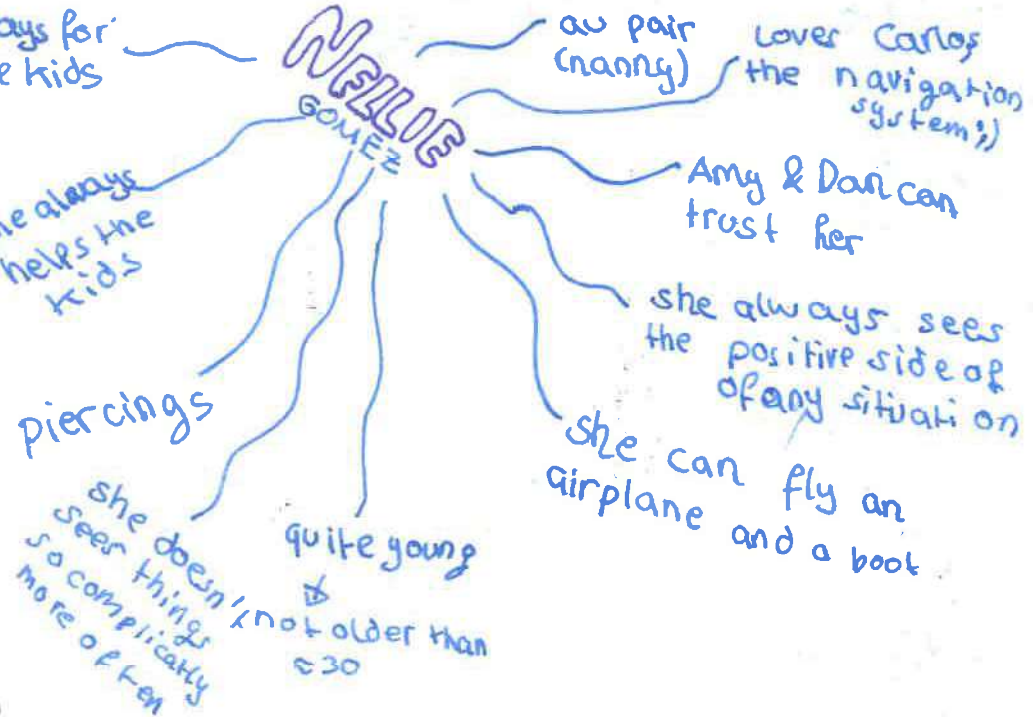 NELLIE
GOMEZ
ays for
e kids
au pair
(nanny)
Lover Carlos,
the navigation
system ;)
Amy & Dan can
trust her
she always sees
the positive side of
of any situation
she can fly an
airplane and a boot
quite young
not older than
≈30
she doesn't
sees things
so complicatly
more often
piercings
he always
helps the
kids